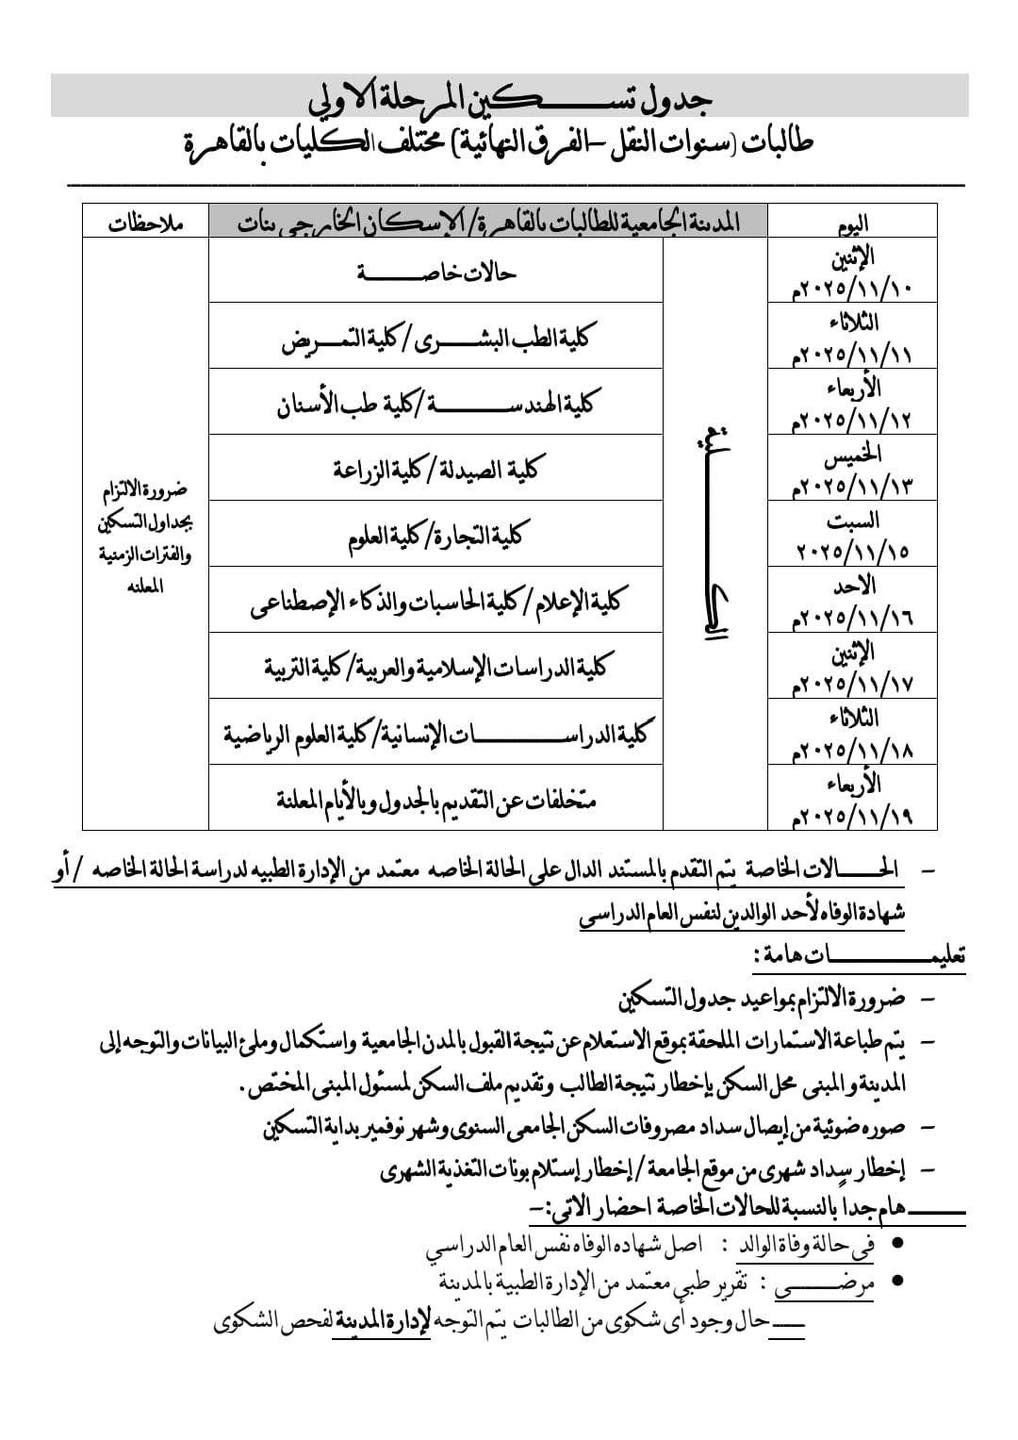 جدول تسكين المرحلة الاولي
طالبات (سنوات النقل – الفرق النهائية) مختلف الكليات بالقاهرة
اليوم المدينة الجامعية للطالبات بالقاهرة/ الإسكان الخارجي بنات ملاحظات
الإثنين
٢٠٢٥/١١/١٠م
حالات خاصة
الثلاثاء
٢٠٢٥/١١/١١م
كلية الطب البشرى /كلية التمريض
الأربعاء
٢٠٢٥/١١/١٢م
كلية الهندسة /كلية طب الأسنان
الخميس
٢٠٢٥/١١/١٣م
كلية الصيدلة /كلية الزراعة
السبت
٢٠٢٥/١١/١٥
كلية التجارة/كلية العلوم
الاحد
٢٠٢٥/١١/١٦م
كلية الإعلام /كلية الحاسبات والذكاء الإصطناعى
الإثنين
٢٠٢٥/١١/١٧م
كلية الدراسات الإسلامية والعربية/كلية التربية
الثلاثاء
٢٠٢٥/١١/١٨م
كلية الدراسات الإنسانية/كلية العلوم الرياضية
الأربعاء
٢٠٢٥/١١/١٩م
متخلفات عن التقديم بالجدول وبالأيام المعلنة
الكلية
ضرورة الالتزام
بجداول التسكين
والفترات الزمنية
المعلنه
– الحالات الخاصة يتم التقدم بالمستند الدال على الحالة الخاصه معتمد من الإدارة الطبيه لدراسة الحالة الخاصه / أو
شهادة الوفاه لأحد الوالدين لنفس العام الدراسى
تعليمات هامة :
– ضرورة الالتزام بمواعيد جدول التسكين
– يتم طباعة الاستمارات الملحقة بموقع الاستعلام عن نتيجة القبول بالمدن الجامعية واستكمال وملئ البيانات والتوجه إلى
المدينة و المبنى محل السكن بإخطار نتيجة الطالب وتقديم ملف السكن لمسئول المبنى المختص .
– صوره ضوئية من إيصال سداد مصروفات السكن الجامعى السنوى وشهر نوفمبر بداية التسكين
– إخطار سدادٍ شهرى من موقع الجامعة / إخطار إستلام بونات التغذية الشهرى
هام جداً بالنسبة للحالات الخاصة احضار الاتي:–
● فى حالة وفاة الوالد : اصل شهاده الوفاه نفس العام الدراسي
● مرضى : تقرير طبى معتمد من الإدارة الطبية بالمدينة
حال وجود أى شكوى من الطالبات يتم التوجه لإدارة المدينة لفحص الشكوى